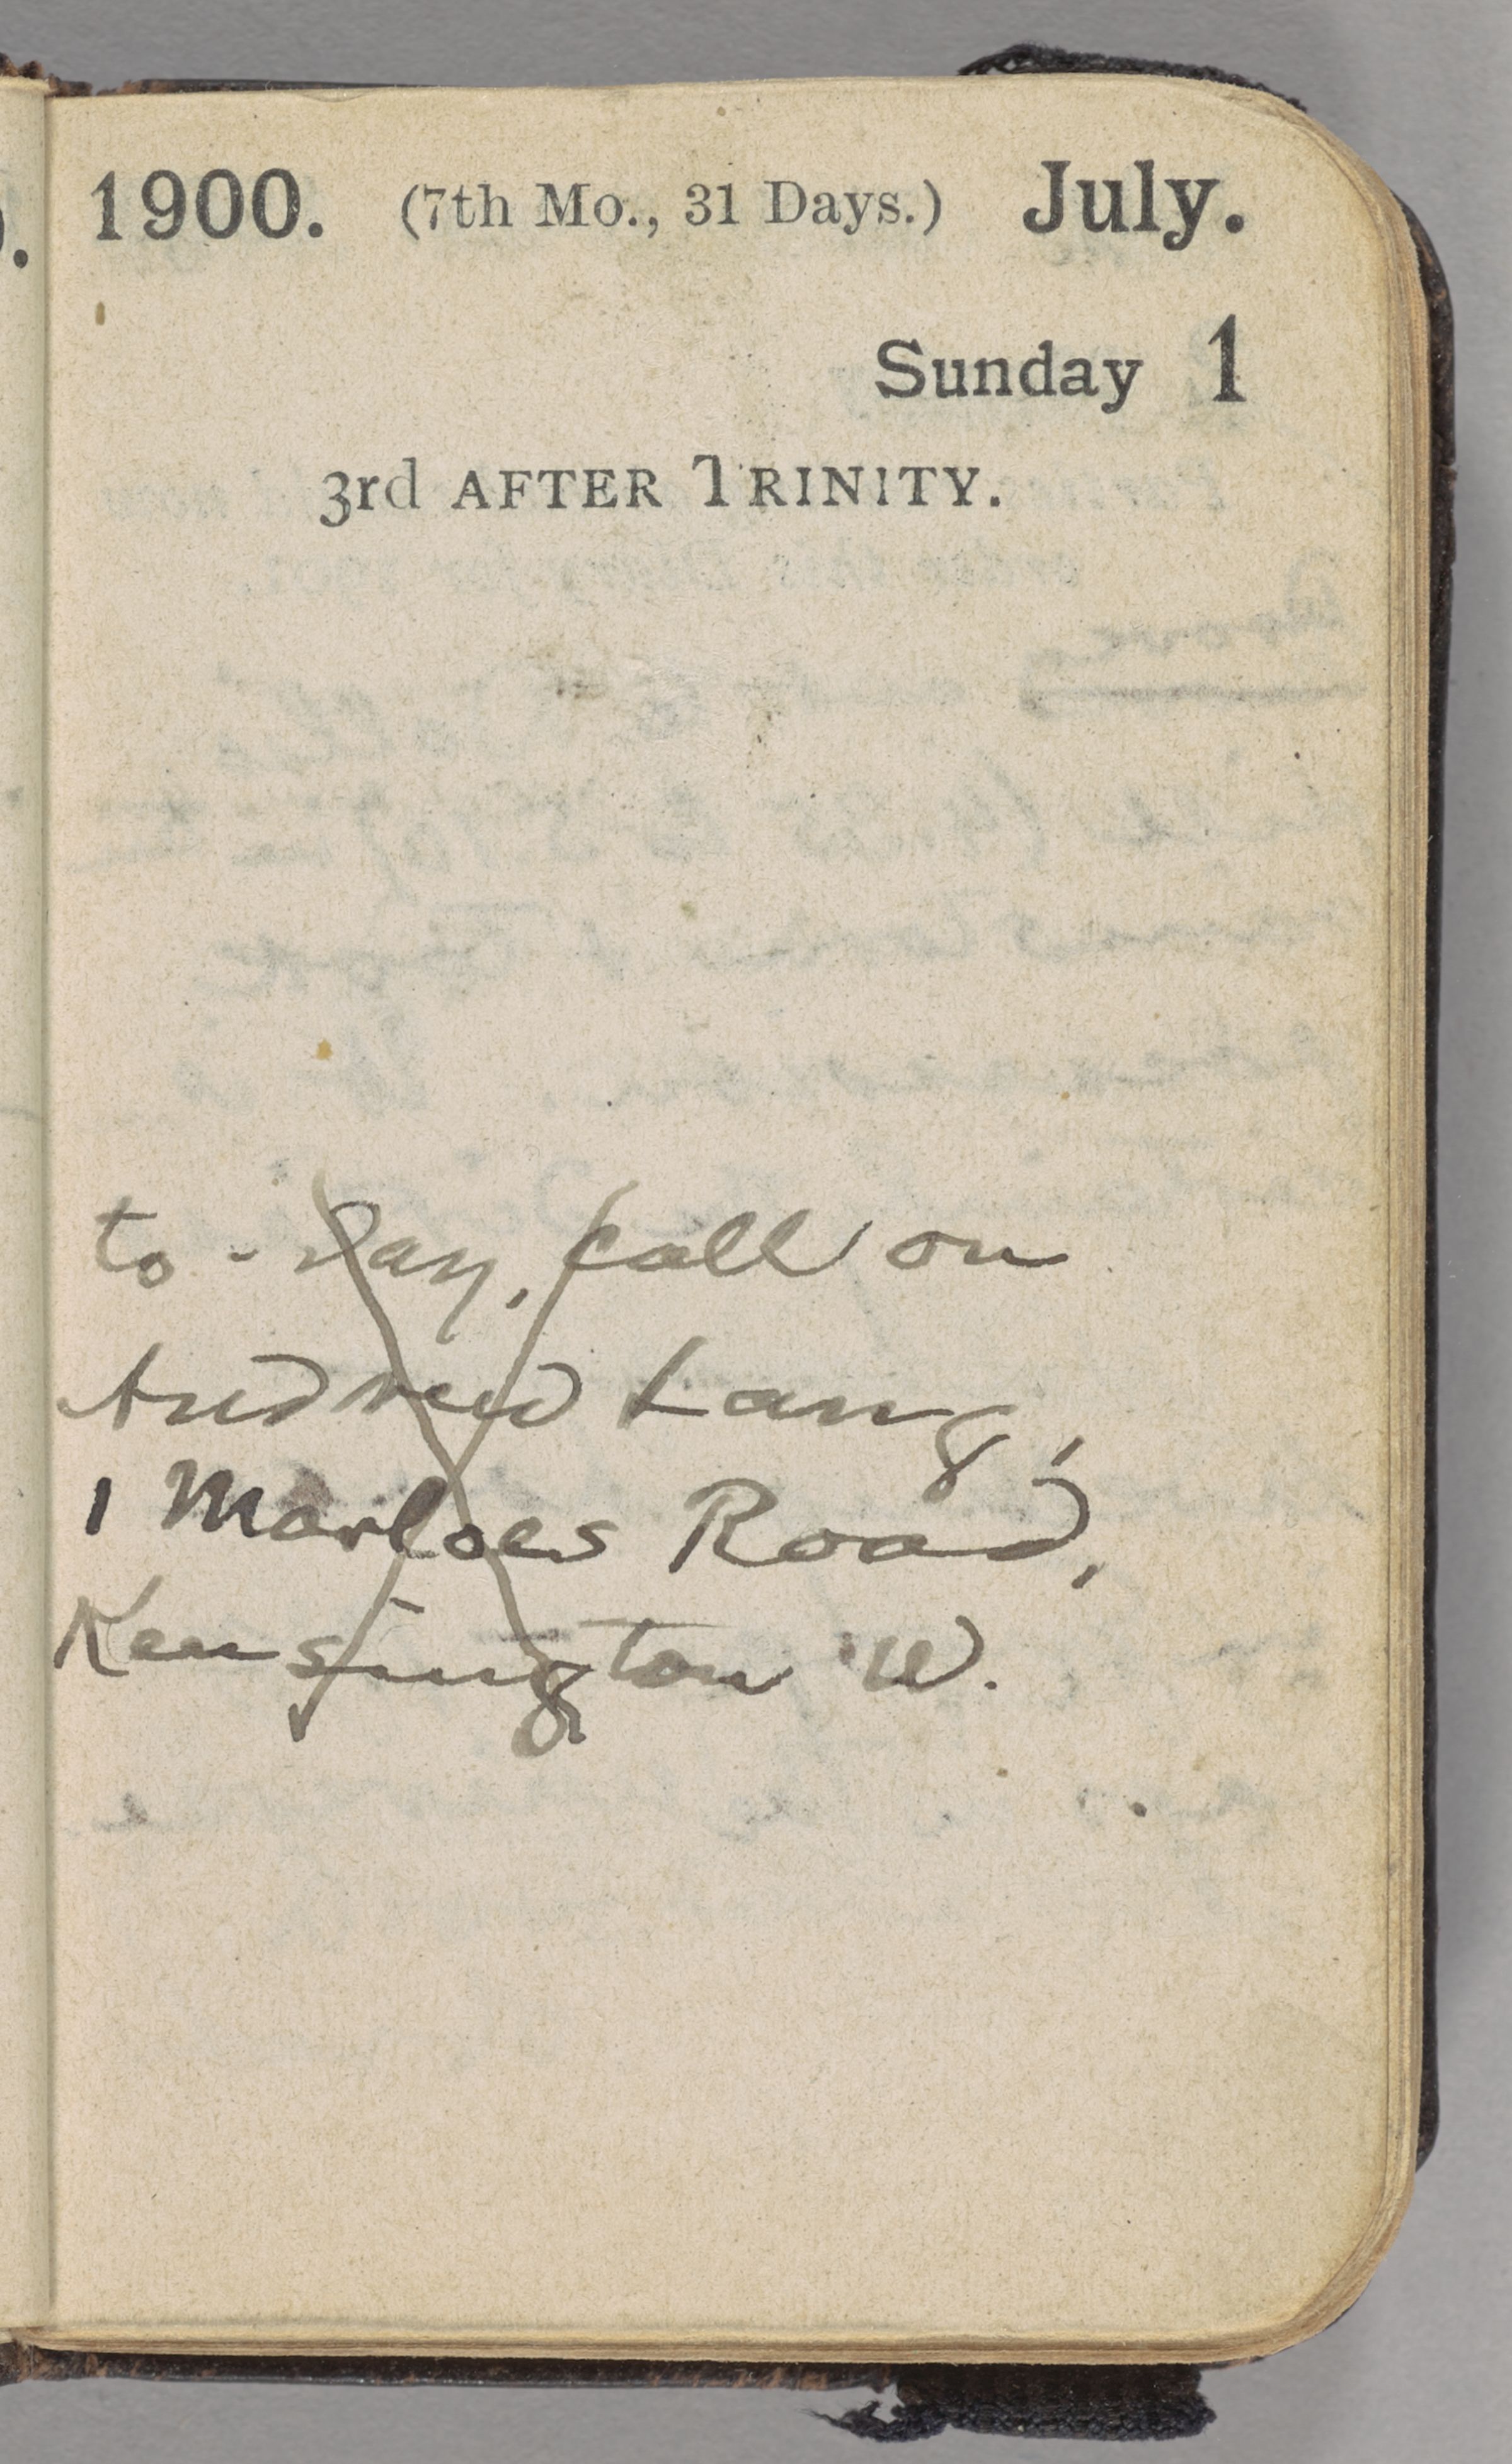 1900. (7th Mo., 31 Days.) July.
Sunday 1
3rd AFTER TRINITY.
to-day, call on
Andrew Lang,
1 Marloes Road,
Kensington W.